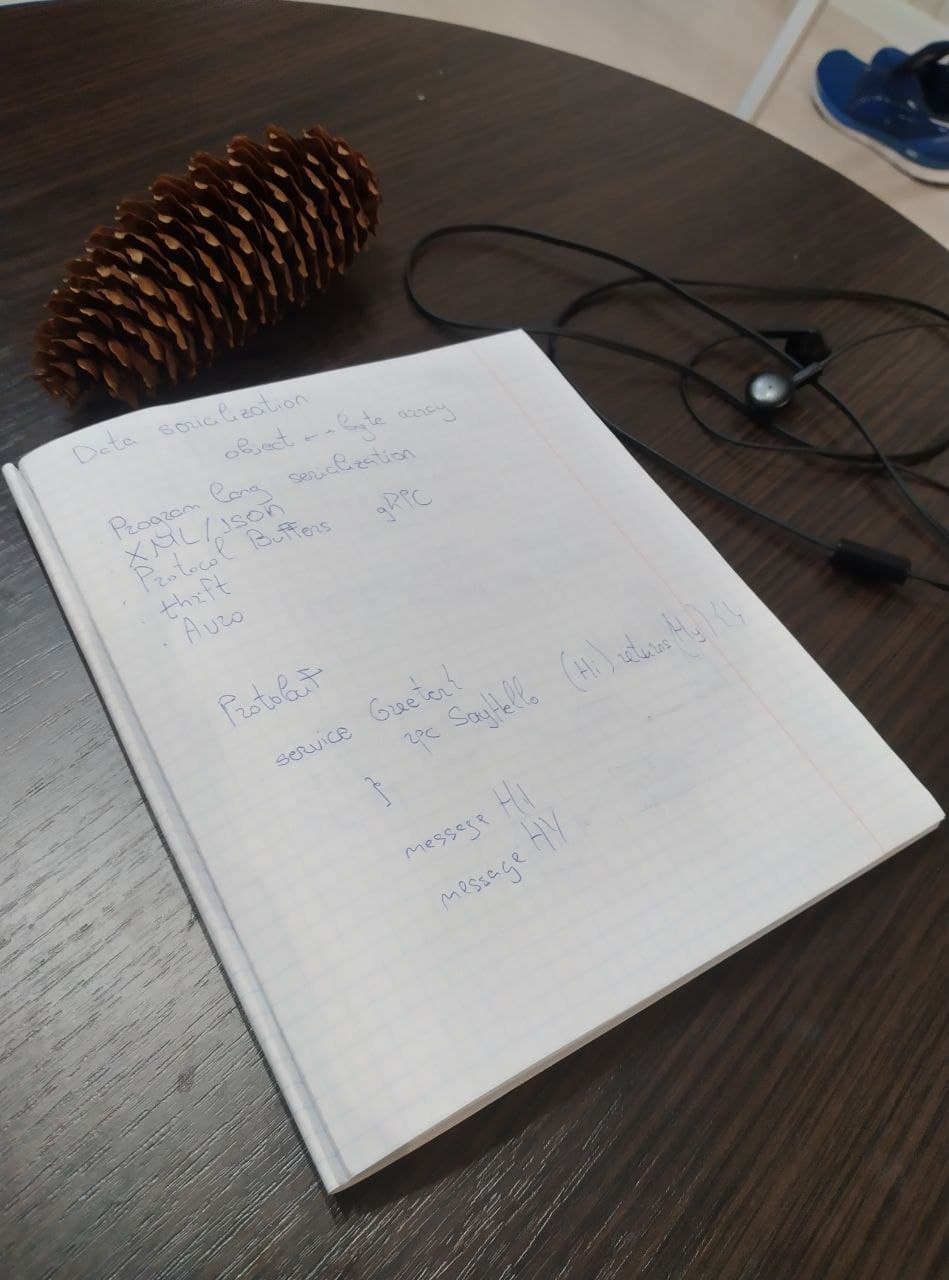 Data serialization
object ←→ byte array
Program lang serialization
XML/JSON
Protocol Buffers gRPC
· thrift
· Avro
Protobuf
service Greeter {
rpc SayHello (Hi) returns (Hy) {}
}
message HI
message HY